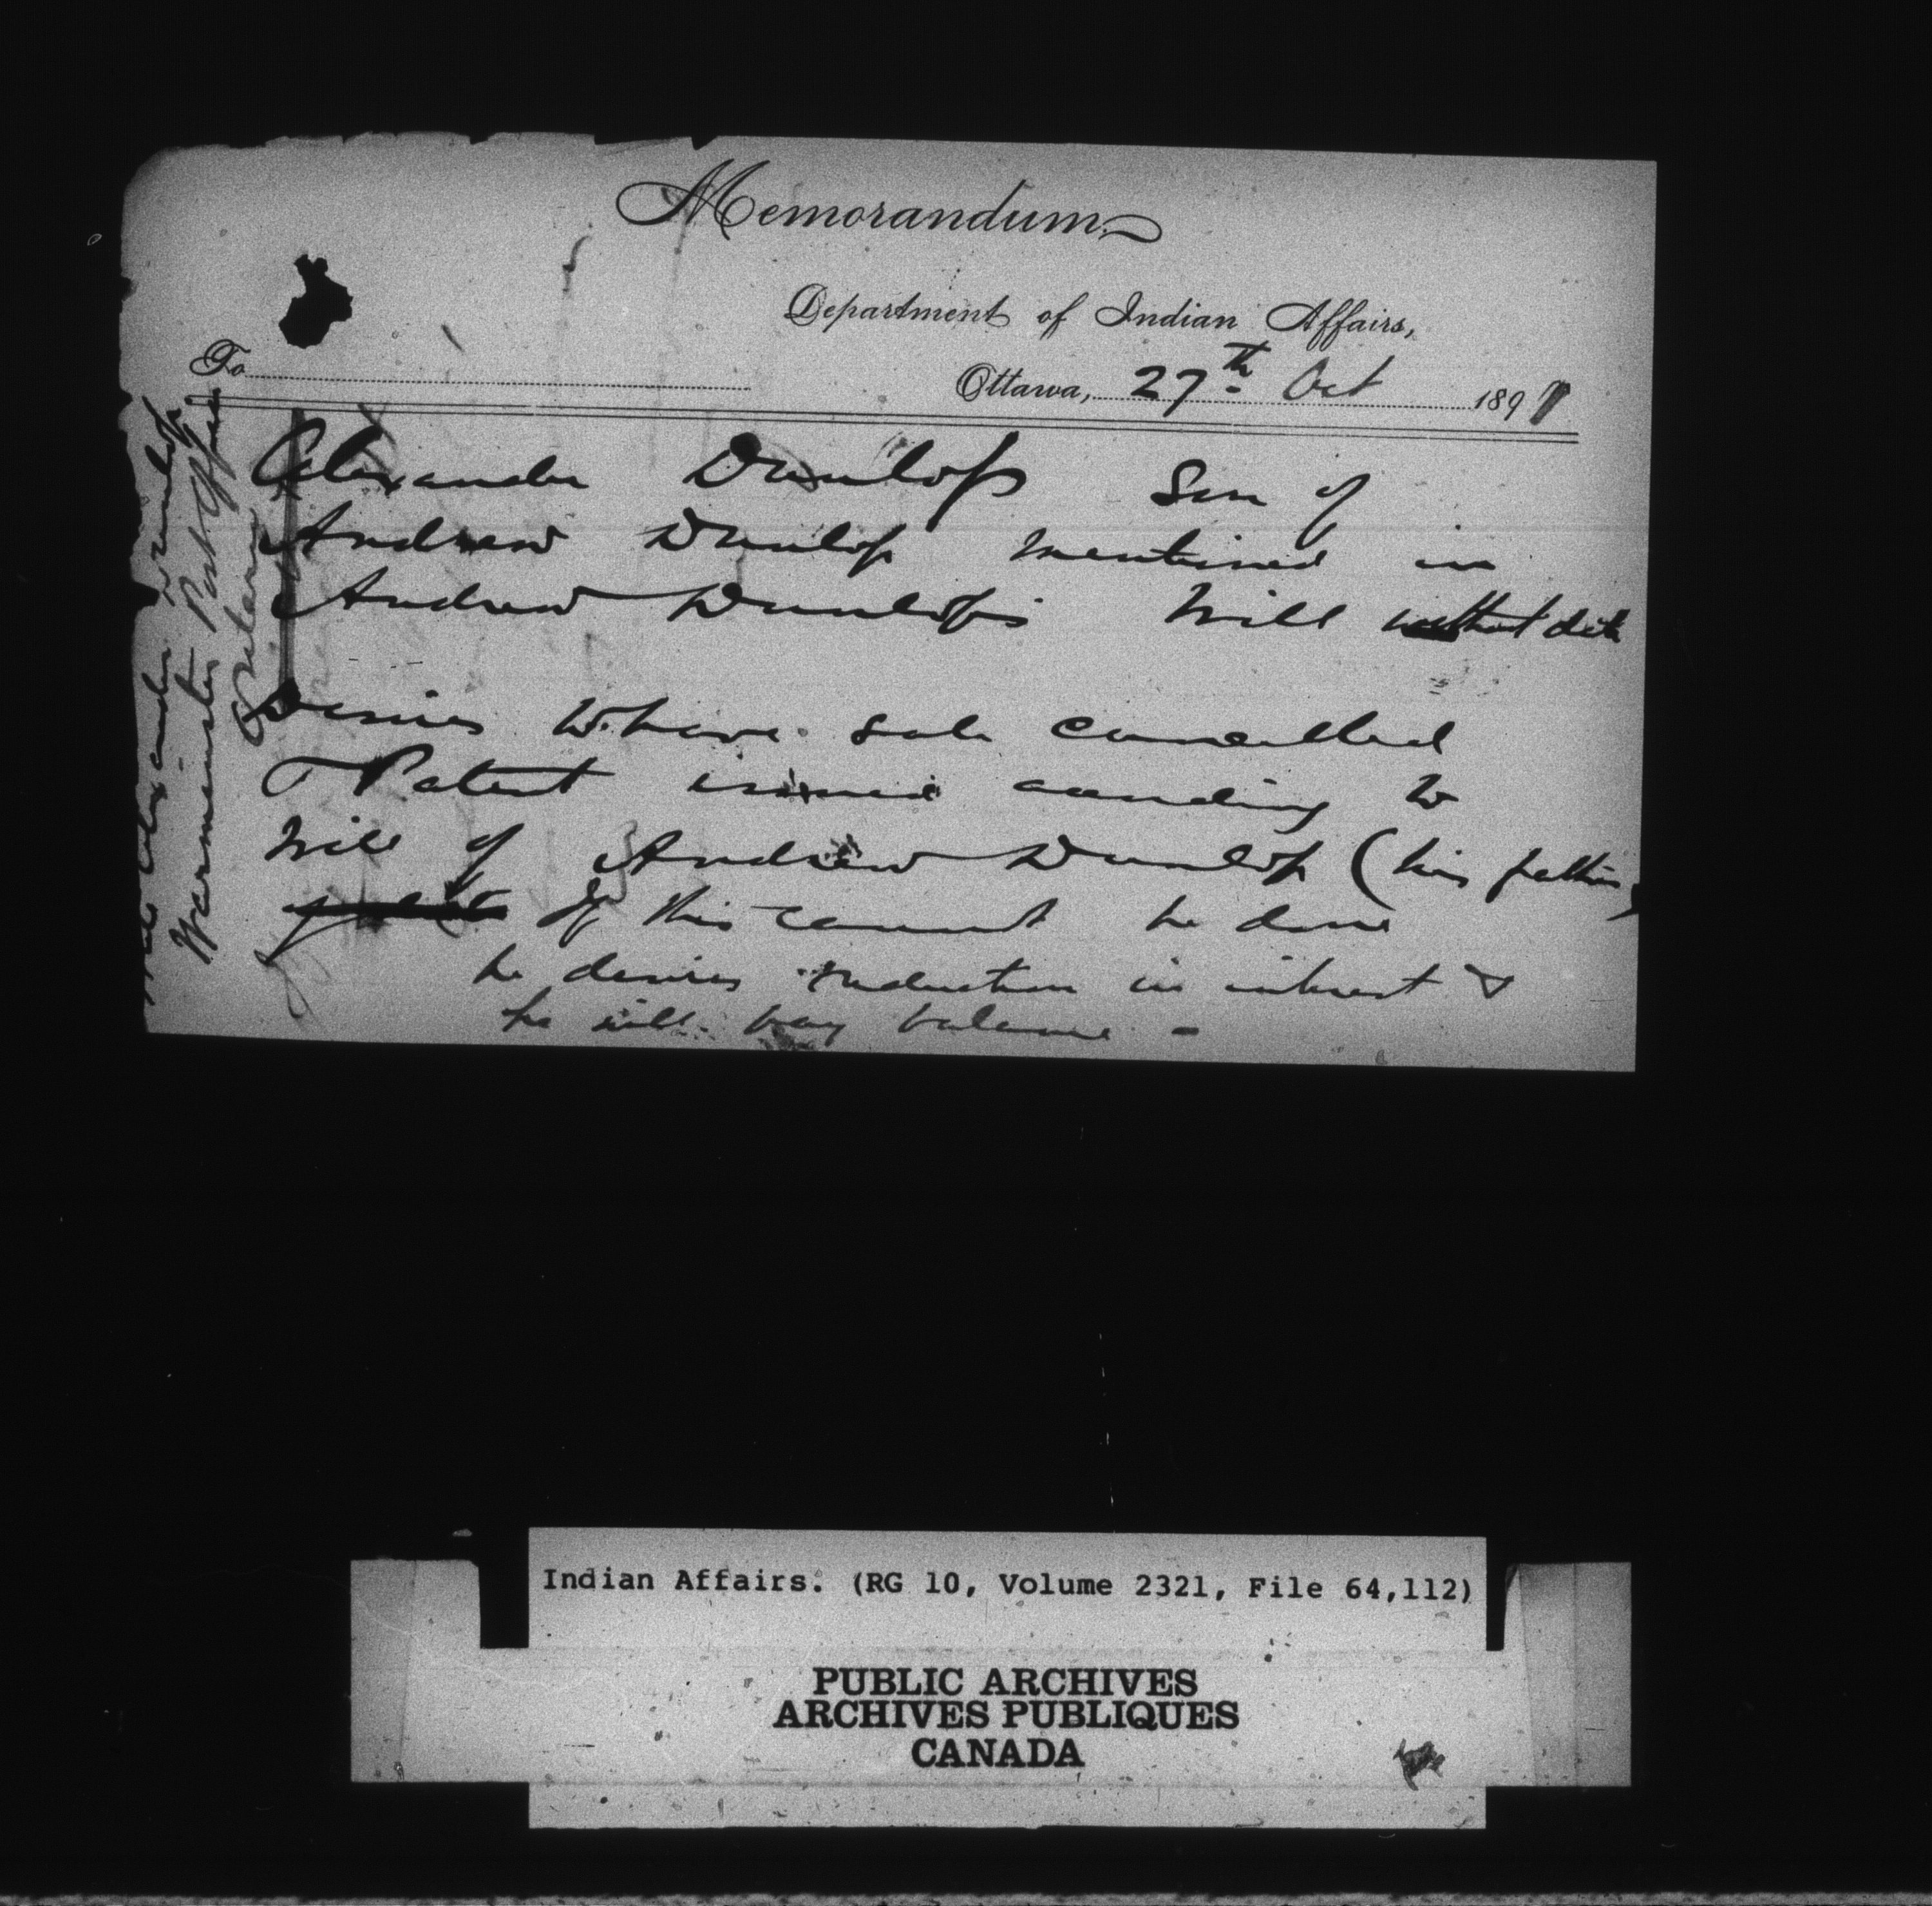 Memorandum.
Department of Indian Affairs,
To
Ottawa, 27th Oct 1891
Alexander Dunlop Son of
Andrew Dunlop mentioned in
Andrew Dunlop's Will without date
Desires to have sale cancelled
& Patent issued according to
Will of Andrew Dunlop (his father)
If this cannot be done
he desires reduction in interest &
he will pay balance -
Alexander Dunlop
Warminster Post Office
Ontario
Indian Affairs. (RG 10, Volume 2321, File 64,112)
PUBLIC ARCHIVES
ARCHIVES PUBLIQUES
CANADA